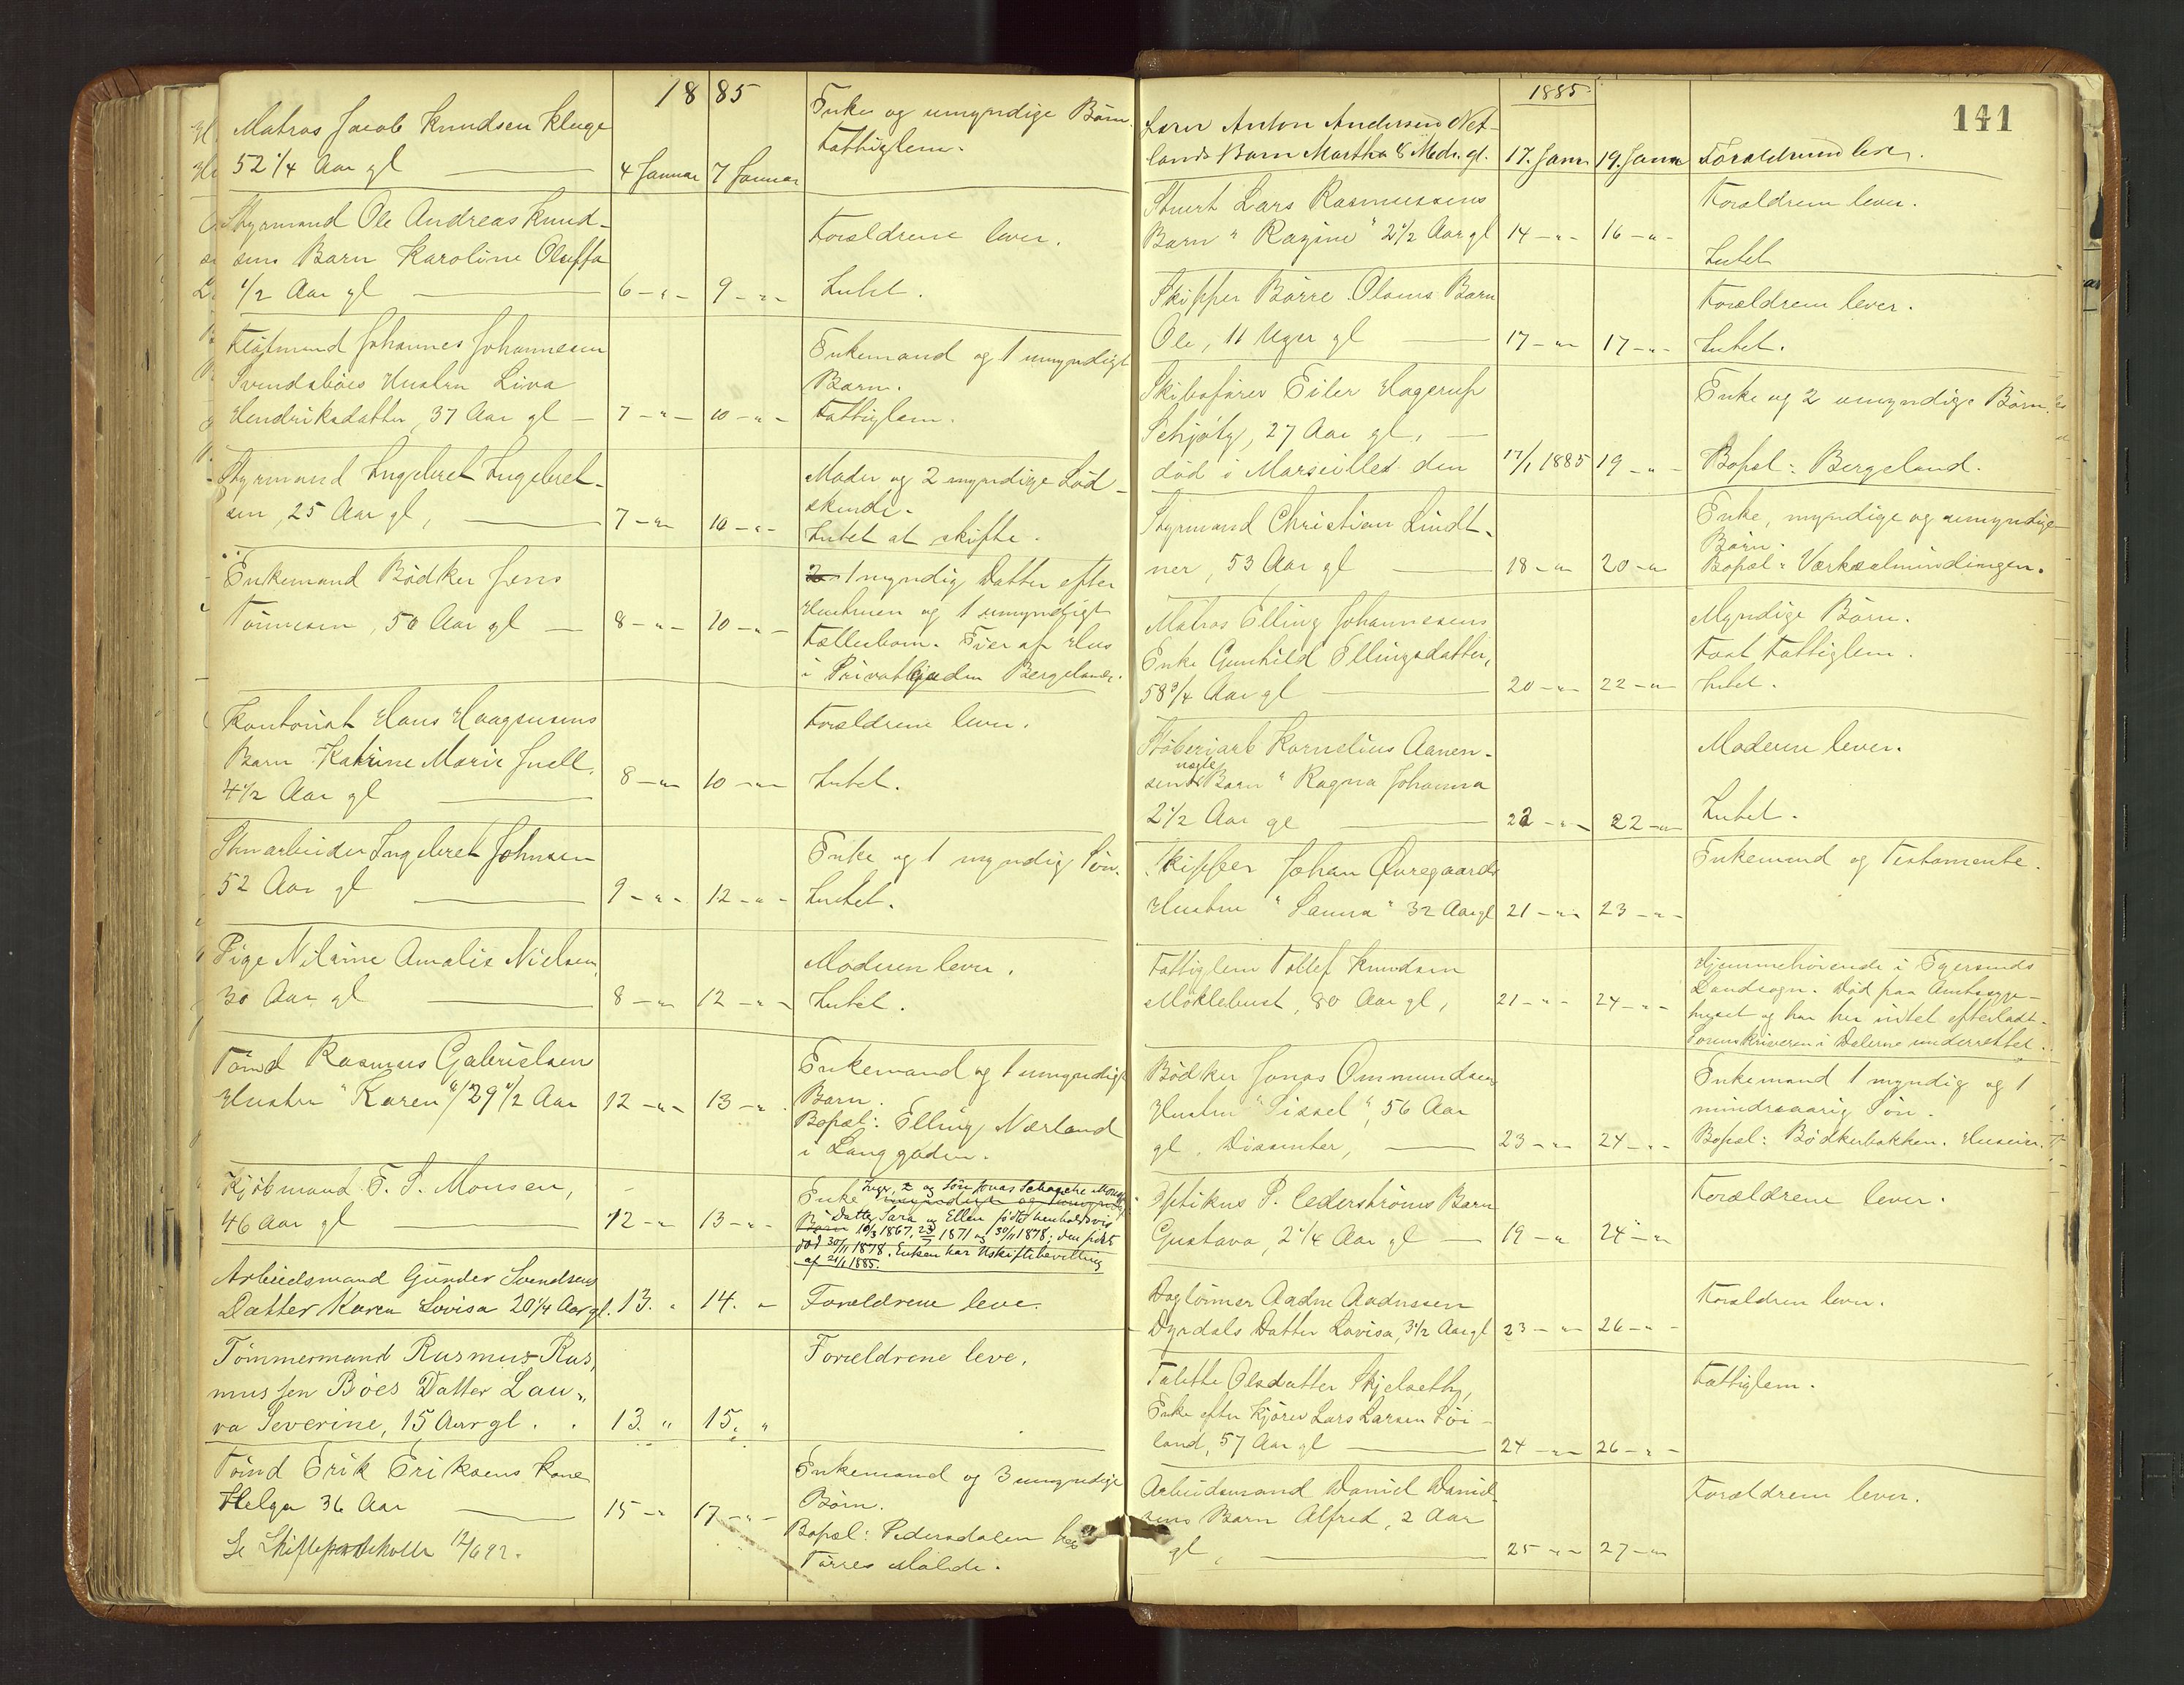 1885
Matros Jacob Knudsen Kluge
52 1/4 Aar gl
4 Januar 7 Januar
Enke og umyndige Børn.
Fattiglem.
Styrmand Ole Andreas Knud-
sens Barn Karoline Oluffa
1/2 Aar gl
6 - " - 9 - " -
Forældrene lever.
Intet.
Johannes Johannesen
Svendsbøes Hustru Liva
Hendriksdatter, 37 Aar gl
7 - " - 10 - " -
Enkemand og 1 umyndigt
Barn.
Fattiglem.
Styrmand Ingebret Ingebret-
sen, 25 Aar gl,
7 - " - 10 - " -
Moder og 2 myndige Sød-
skende.
Intet at skifte.
Enkemand Bødker Jens
Tønnesen, 50 Aar gl
8 - " - 10 - " -
1 myndig Datter efter
Hustruen og 1 umyndigt
Fællesbarn. Eier af Hus
i Privatgaden Bergeland.
Kontorist Hans Haagensens
Barn Katrine Marie Juell,
4 1/2 Aar gl
8 - " - 10 - " -
Forældrene lever.
Intet.
Stenarbeider Ingebret Johnsen
52 Aar gl
9 - " - 12 - " -
Enke og 1 myndig Søn.
Intet.
Pige Nilsine Amalie Nielsen,
30 Aar gl
8 - " - 12 - " -
Moderen lever.
Intet.
Tømd Rasmus Gabrielsen
Hustru "Karen" 29 1/2 Aar
12 - " - 13 - " -
Enkemand og 1 umyndigt
Barn.
Bopæl: Elling Nærland
i Langgaden.
Kjøbmand F. S. Monsen,
46 Aar gl
12 - " - 13 - " -
Enke, og Søn Jonas Schanche Monsen
Datter Sara og Ellen fødte henholdsvis
10/3 1867, 23/7 1871 og 30/11 1878; den sidste
død 30/11 1878. Enken har Uskiftebevilling
af 21/1 1885.
Arbeidsmand Gunder Svendsens
Datter Karen Lovisa 20 1/4 Aar gl.
13. " 14. "
Forældrene leve.
Tømmermand Rasmus Ras,
mussen Bøes Datter Lau,,
ra Severine, 15 Aar gl.
13. " 15. "
Forældrene leve.
Tømd Erik Eriksens Kone
Helga 36 Aar
15 - " 17 - " -
Enkemand og 3 umyndige
Børn.
Bopæl: Pedersdalen hos
Tørres Malde.
Se Skifteprotokoll 12/6 92.
141
1885
Lærer Anton Andersen Net-
lands Barn Martha 8 Mdr. gl.
17. Janr 19. Janr
Forældrene lever.
Stuert Lars Rasmussens
Barn "Ragine" 2 1/2 Aar gl
14 - " - 16 - " -
Forældrene lever.
Intet
Skipper Børre Olsens Barn
Ole, 11 Uger gl
17 - " - 17 - " -
Forældrene lever.
Intet.
Skibsfører Eiler Hagerup
Schjøtz, 27 Aar gl,
død i Marseilles den
17/1 1885 19 - " -
Enke og 2 umyndige Børn.
Bopæl: Bergeland.
Styrmand Christian Lindt-
ner, 53 Aar gl
18 - " 20 - "
Enke, myndige og umyndige
Børn.
Bopæl: Værksalmindingen.
Matros Elling Johannesens
Enke Gunhild Ellingsdatter,
58 3/4 Aar gl
20 - " - 22 - " -
Myndige Børn.
Fast Fattiglem.
Intet.
Støberiarb Kornelius Aanen-
sens uægte Barn "Ragna Johanna
2 1/2 Aar gl
22 - " - 22 - " -
Moderen lever.
Intet.
Skipper Johan Øvregaards
Hustru "Sanna" 32 Aar gl
21 - " - 23 - " -
Enkemand og Testamente.
Fattiglem Tollef Knudsen
Møklebust, 80 Aar gl,
21 - " - 24 - " -
Hjemmehørende i Egersunds
Landsogn. Død paa Amtssyge-
huset og har her intet efterladt.
Sorenskriveren i Dalerne underrettet.
Bødker Jonas Ommundsen
Hustru "Sissel", 56 Aar
gl, Dissenter,
23 - " - 24 - " -
Enkemand 1 myndig og 1
mindreaarig Søn.
Bopæl: Bødkerbakken. Huseier.
Optikus P. Cederstrøms Barn
Gustava, 2 1/4 Aar gl
19 - " 24 - "
Forældrene lever.
Daglønner Aadne Aadnesen
Dyrdals Datter Lovisa, 3 1/2 Aar gl
23 - " - 26 - " -
Forældren lever.
Talette Olsdatter Skjelsetby,
Enke efter Kjører Lars Larsen Søi-
land, 57 Aar gl
24 - " - 26 - " -
Fattiglem.
Arbeidsmand Daniel Daniel-
sens Barn Alfred, 2 Aar
gl,
25 - " - 27 - "
Forældrene lever.